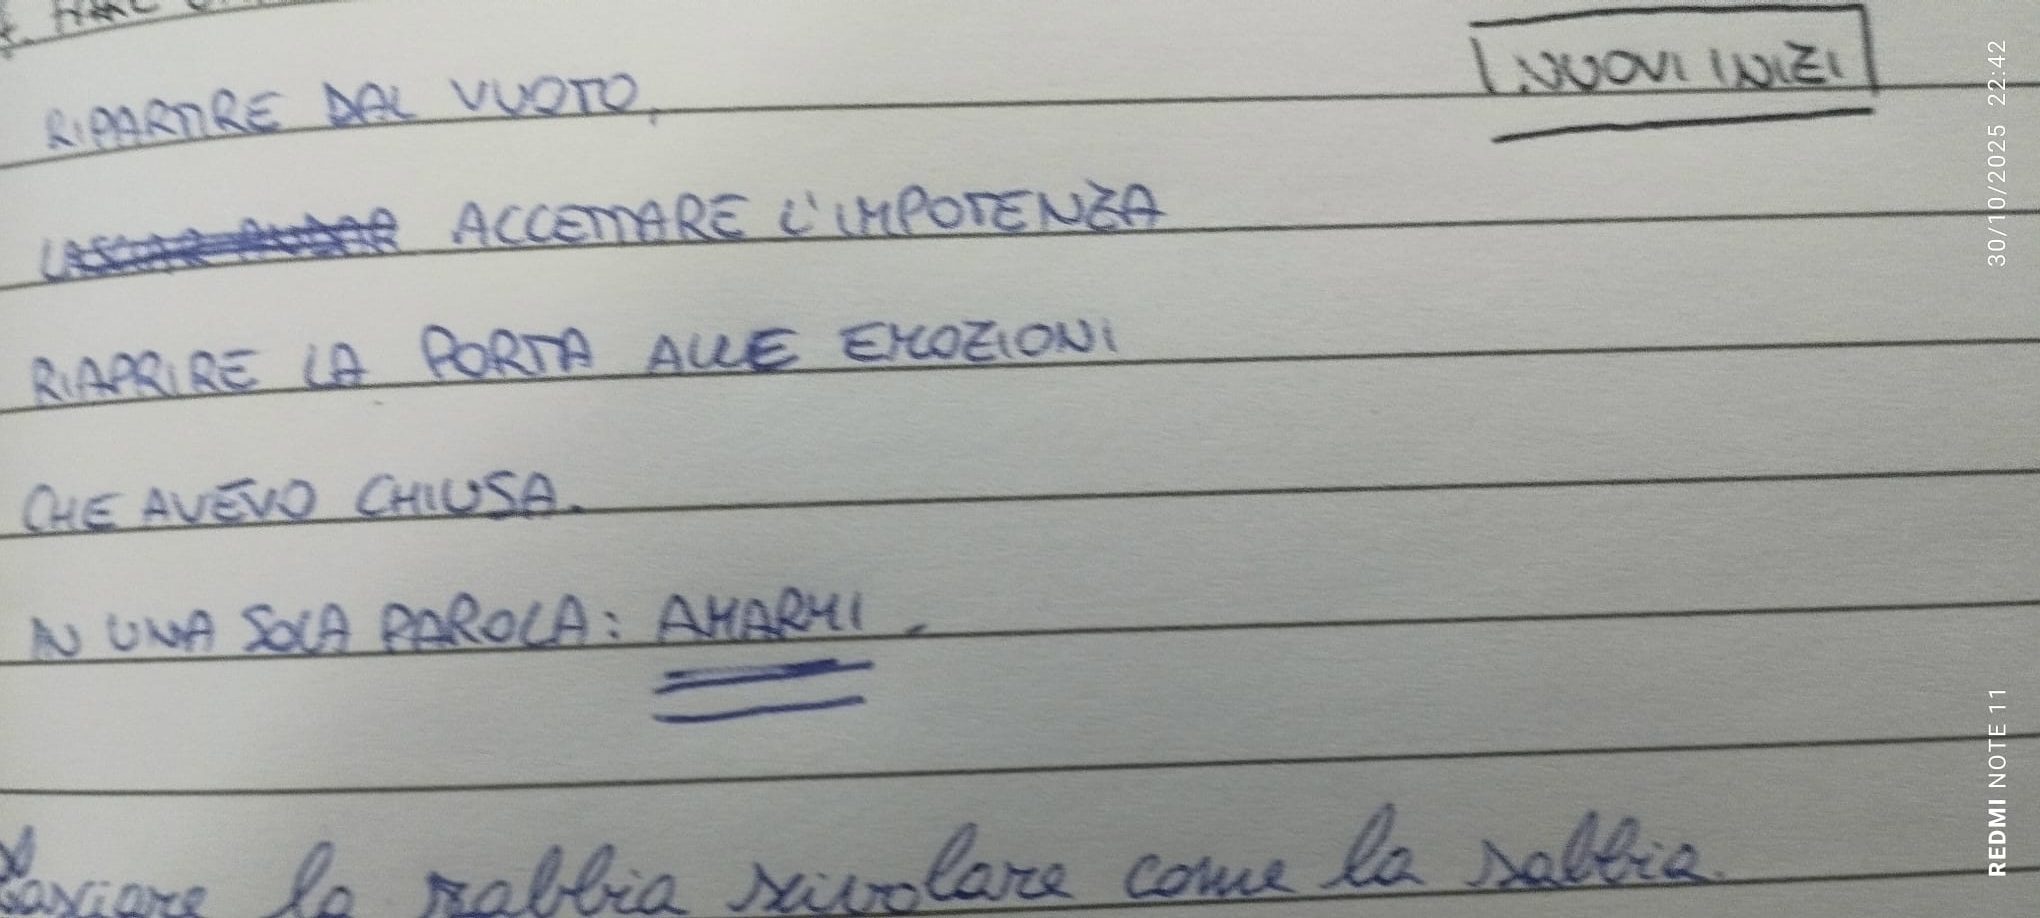 NUOVI INIZI
RIPARTIRE DAL VUOTO,
LASCIAR ANDAR ACCETTARE L'IMPOTENZA
RIAPRIRE LA PORTA ALLE EMOZIONI
CHE AVEVO CHIUSA.
IN UNA SOLA PAROLA: AMARMI.
Lasciare la rabbia scivolare come la sabbia.
30/10/2025 22:42
REDMI NOTE 11